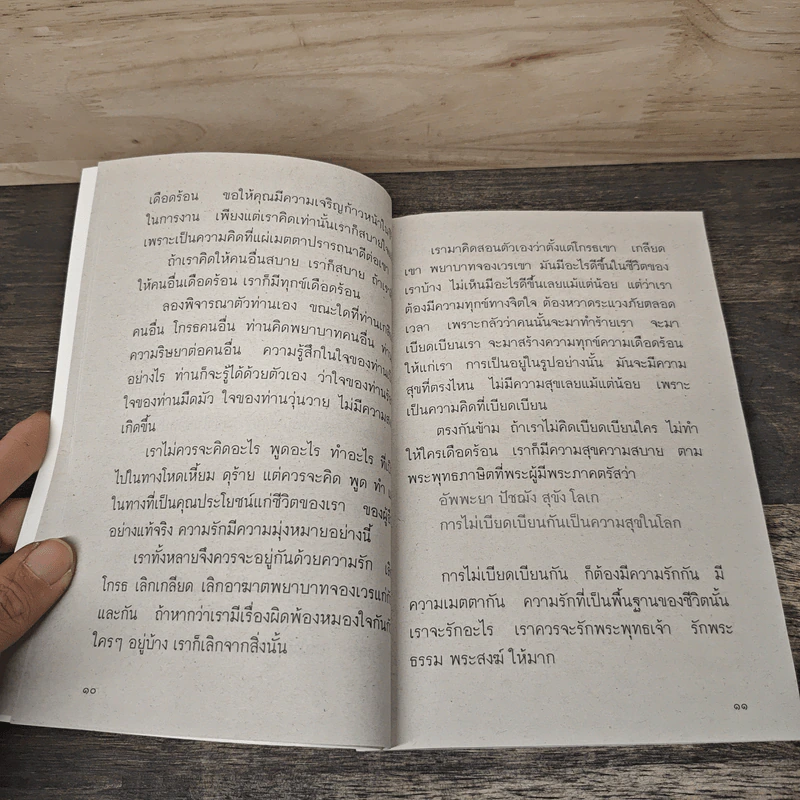 เดือดร้อน ขอให้คุณมีความเจริญก้าวหน้าใน
ในการงาน เพียงแต่เราคิดเท่านั้นเราก็สบายใจ
เพราะเป็นความคิดที่แผ่เมตตาปรารถนาดีต่อเขา
ถ้าเราคิดให้คนอื่นสบาย เราก็สบาย ถ้าเรา
ให้คนอื่นเดือดร้อน เราก็มีทุกข์เดือดร้อน
ลองพิจารณาตัวท่านเอง ขณะใดที่ท่าน
คนอื่น โกรธคนอื่น ท่านคิดพยาบาทคนอื่น
ความริษยาต่อคนอื่น ความรู้สึกในใจของท่าน
อย่างไร ท่านก็จะรู้ได้ด้วยตัวเอง ว่าใจของท่าน
ใจของท่านมืดมัว ใจของท่านวุ่นวาย ไม่มีความ
เกิดขึ้น
เราไม่ควรจะคิดอะไร พูดอะไร ทำอะไร
ไปในทางโหดเหี้ยม ดุร้าย แต่ควรจะคิด พูด ทำ
ในทางที่เป็นคุณประโยชน์แก่ชีวิตของเรา
อย่างแท้จริง ความรักมีความมุ่งหมายอย่างนี้
เราทั้งหลายจึงควรจะอยู่กันด้วยความรัก
โกรธ เลิกเกลียด เลิกอาฆาตพยาบาทจองเวรแก่
และกัน ถ้าหากว่าเรามีเรื่องผิดพ้องหมองใจกัน
ใครๆ อยู่บ้าง เราก็เลิกจากสิ่งนั้น
๑๐
เรามาคิดสอนตัวเองว่าตั้งแต่โกรธเขา เกลียด
เขา พยาบาทจองเวรเขา มันมีอะไรดีขึ้นในชีวิตของ
เราบ้าง ไม่เห็นมีอะไรดีขึ้นเลยแม้แต่น้อย แต่ว่าเรา
ต้องมีความทุกข์ทางจิตใจ ต้องหวาดระแวงภัยตลอด
เวลา เพราะกลัวว่าคนนั้นจะมาทำร้ายเรา จะมา
เบียดเบียนเรา จะมาสร้างความทุกข์ความเดือดร้อน
ให้แก่เรา การเป็นอยู่ในรูปอย่างนั้น มันจะมีความ
สุขที่ตรงไหน ไม่มีความสุขเลยแม้แต่น้อย เพราะ
เป็นความคิดที่เบียดเบียน
ตรงกันข้าม ถ้าเราไม่คิดเบียดเบียนใคร ไม่ทำ
ให้ใครเดือดร้อน เราก็มีความสุขความสบาย ตาม
พระพุทธภาษิตที่พระผู้มีพระภาคตรัสว่า
อัพพะยา ปัชฌัง สุขัง โลเก
การไม่เบียดเบียนกันเป็นความสุขในโลก
การไม่เบียดเบียนกัน ก็ต้องมีความรักกัน มี
ความเมตตากัน ความรักที่เป็นพื้นฐานของชีวิตนั้น
เราจะรักอะไร เราควรจะรักพระพุทธเจ้า รักพระ
ธรรม พระสงฆ์ ให้มาก
๑๑